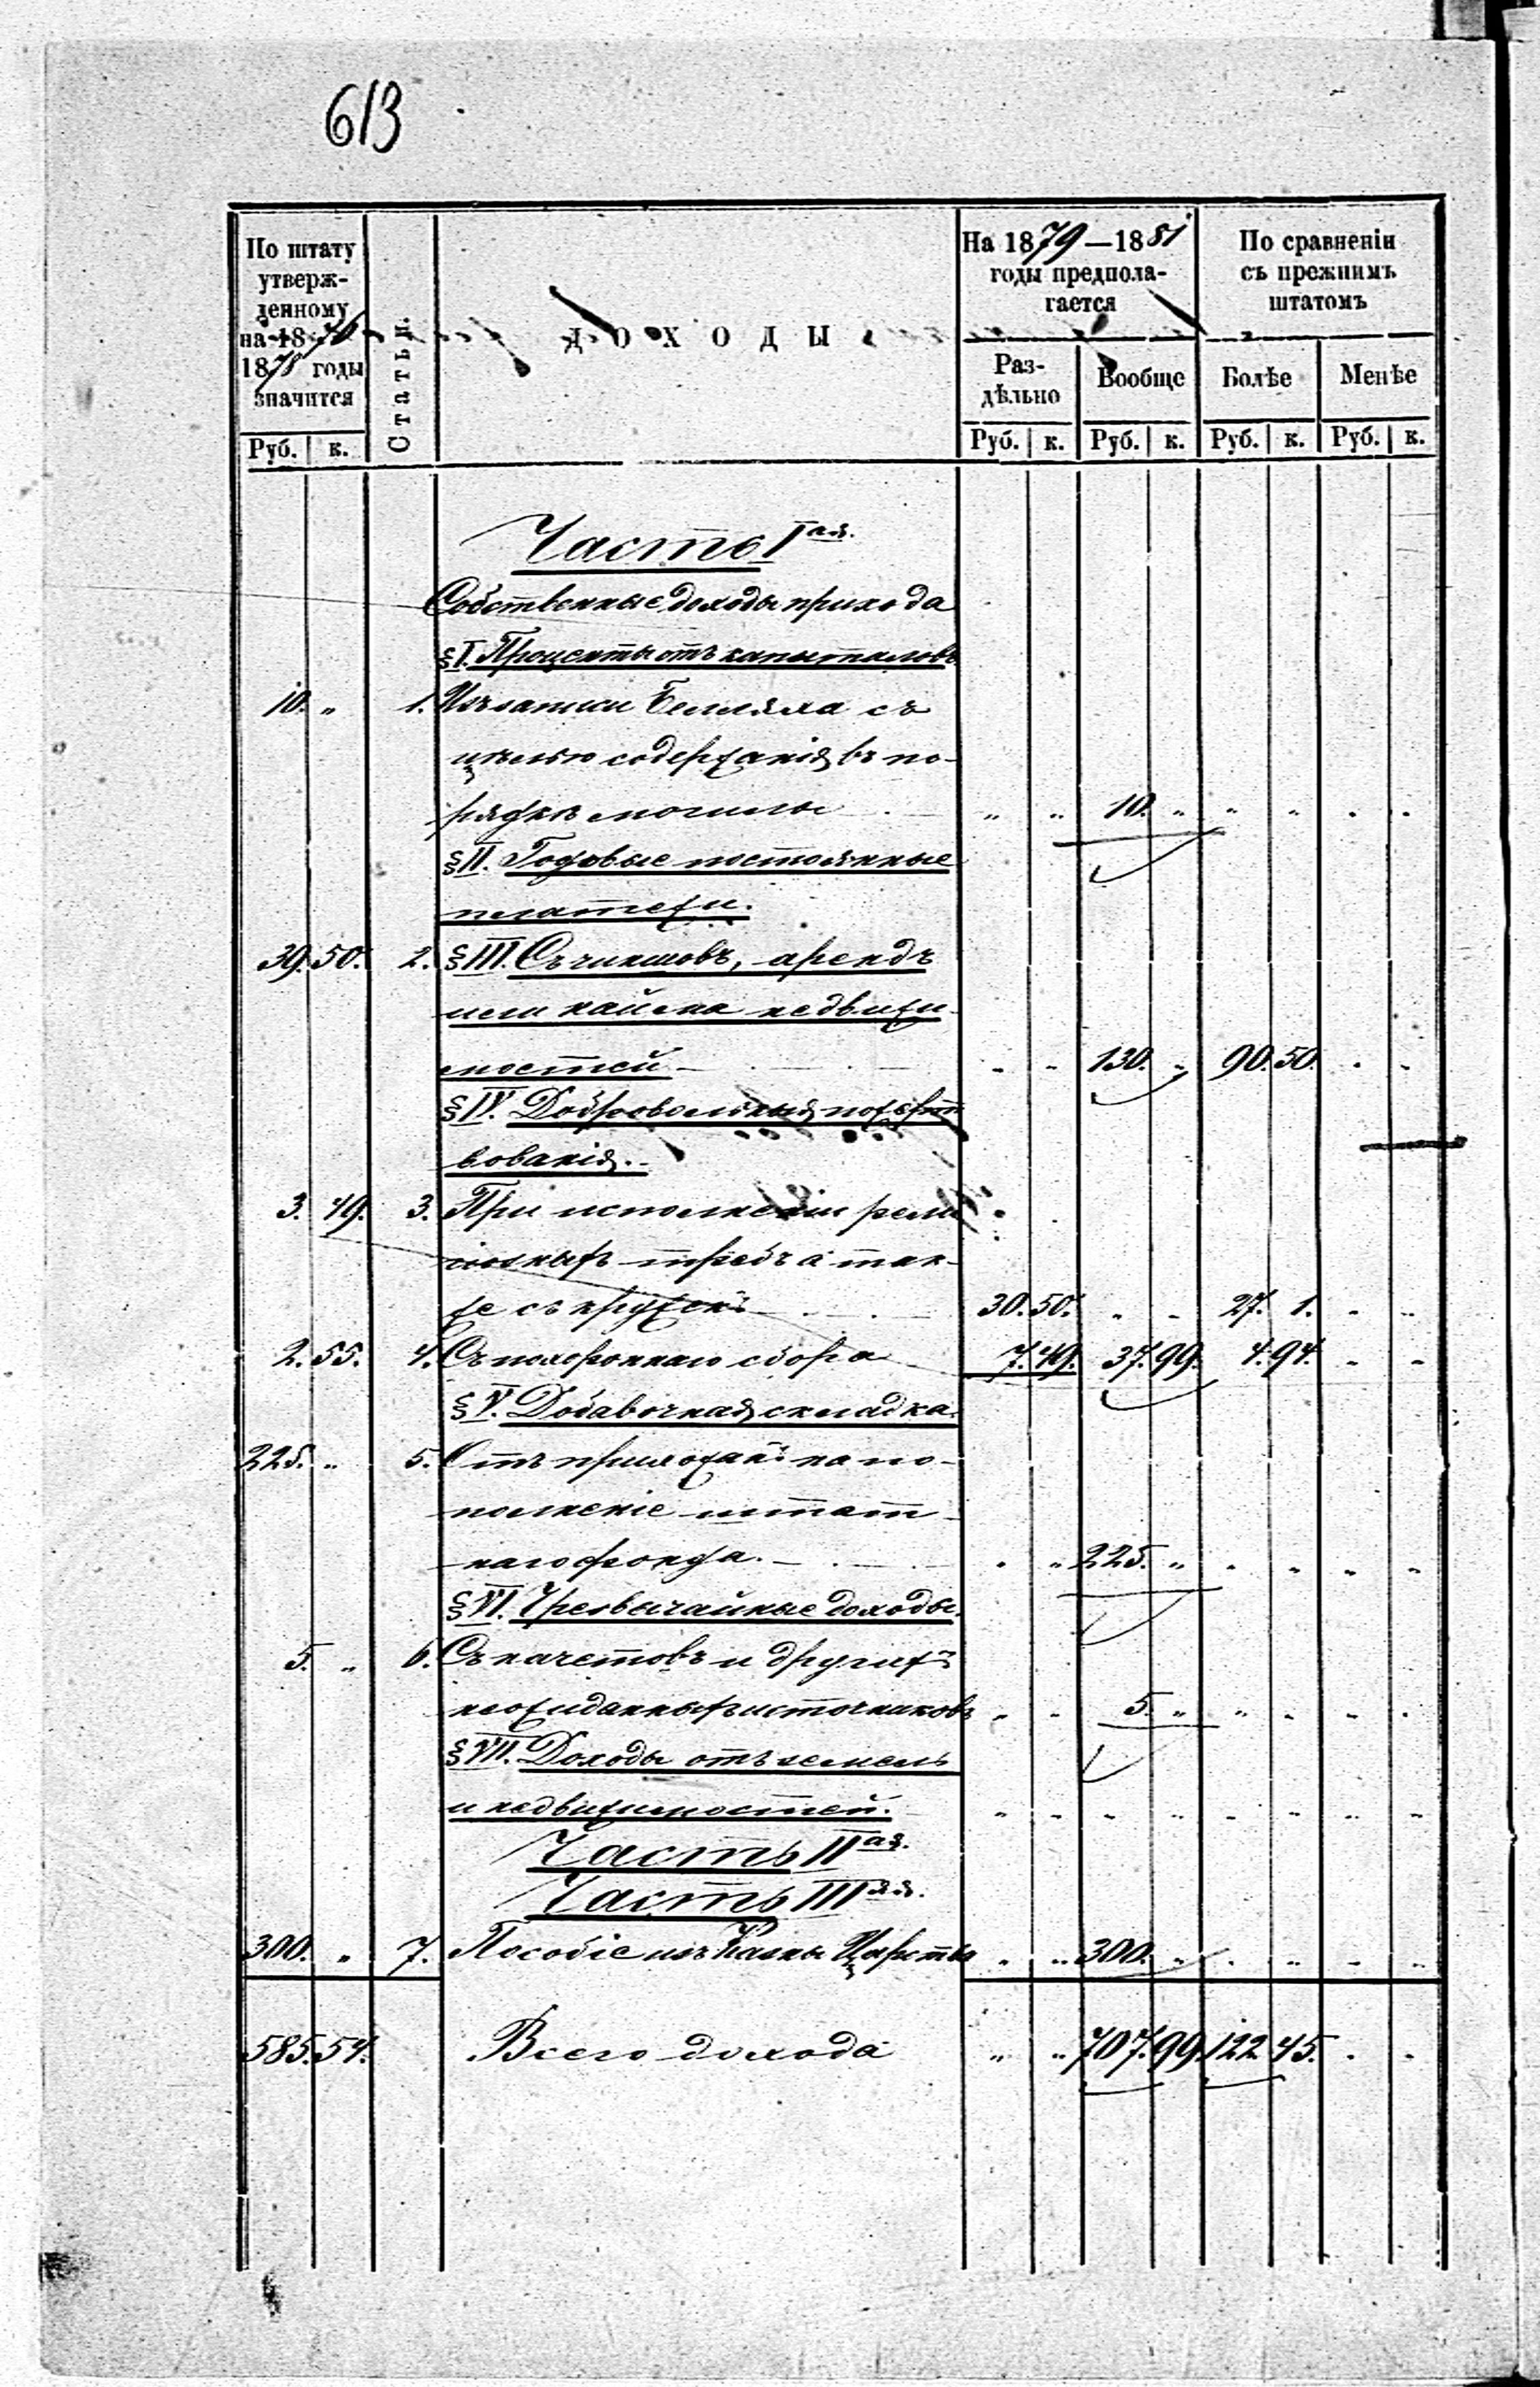 613
По штату утверж-денному на 1876-1878 годы значится
Статьи.
ДОХОДЫ
На 1879—1881 годы предпола-гается
По сравненіи съ прежнимъ штатомъ
Раз-дѣльно
Вообще
Болѣе
Менѣе
Руб. к. Руб. к. Руб. к. Руб. к. Руб. к.
Часть Iая.
Собственные доходы прихода
§ I. Проценты отъ капыталовъ
10. „ 1. Изъ записи съ
цѣлью содержанія въ по-
рядкѣ могилы „ „ 10. „ „ „ . .
§ II. Годовые постоянные
платежи.
39. 50. 2. § III. Съ чиншовъ, арендъ
или найма недвижи-
мостей - „ „ 130. „ 90. 50. . .
§ IV. Добровольныя пожерт-
вованія.
3. 49. 3. При исполненіи рели-
гіозныхъ требъ а так-
же съ кружекъ 30. 50. „ „ 27. 1. „ „
2. 55. 4. Съ похороннаго сбора 7. 49. 37. 99. 4. 94. „ „
§ V. Добавочная складка.
225. „ 5. Отъ прихожанъ на по-
полненіе штат-
наго фонда. - „ „ 225. „ „ „ „ „
§ VI. Чрезвычайные доходы.
5. „ 6. Съ начетовъ и другихъ
неожиданныхъ источниковъ „ „ 5. „ „ „ „ .
§ VII. Доходы отъ земель
и недвижимостей. „ „ „ „ „ „ „ „
Часть IIая.
Часть IIIяя.
300. „ 7. Пособіе изъ Казны Царства „ „ 300. „ „ „ „ „
585. 54. Всего дохода „ „ 707. 99. 122. 45. . .